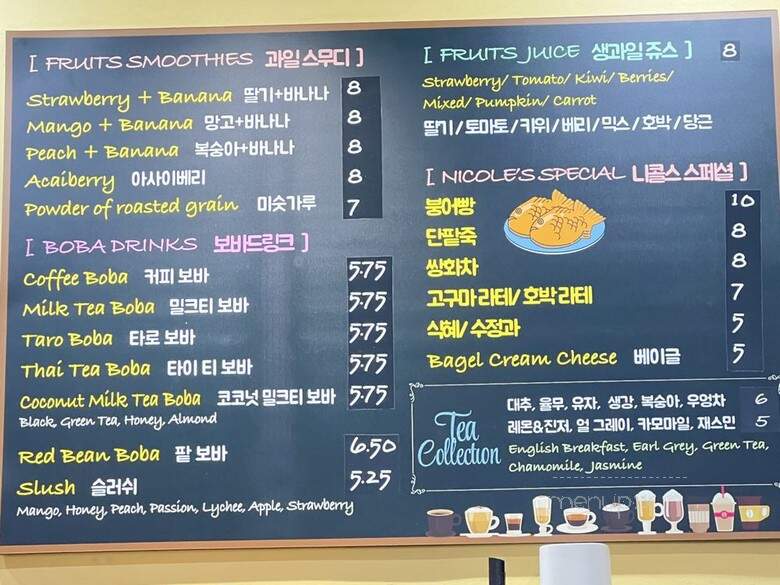 [ FRUITS SMOOTHIES 과일 스무디 ]
Strawberry + Banana 딸기+바나나 8
Mango + Banana 망고+바나나 8
Peach + Banana 복숭아+바나나 8
Acaiberry 아사이베리 8
Powder of roasted grain 미숫가루 7
[ BOBA DRINKS 보바드링크 ]
Coffee Boba 커피 보바 5.75
Milk Tea Boba 밀크티 보바 5.75
Taro Boba 타로 보바 5.75
Thai Tea Boba 타이 티 보바 5.75
Coconut Milk Tea Boba 코코넛 밀크티 보바 5.75
Black, Green Tea, Honey, Almond
Red Bean Boba 팥 보바 6.50
Slush 슬러쉬 5.25
Mango, Honey, Peach, Passion, Lychee, Apple, Strawberry
[ FRUITS JUICE 생과일 쥬스 ] 8
Strawberry/ Tomato/ Kiwi/ Berries/
Mixed/ Pumpkin/ Carrot
딸기/토마토/키위/베리/믹스/호박/당근
[ NICOLE'S SPECIAL 니콜스 스페셜 ]
붕어빵 10
단팥죽 8
쌍화차 8
고구마 라테/ 호박 라테 7
식혜/ 수정과 5
Bagel Cream Cheese 베이글 5
Tea
Collection
대추, 율무, 유자, 생강, 복숭아, 우엉차 6
레몬&진저, 얼 그레이, 카모마일, 재스민 5
English Breakfast, Earl Grey, Green Tea,
Chamomile, Jasmine